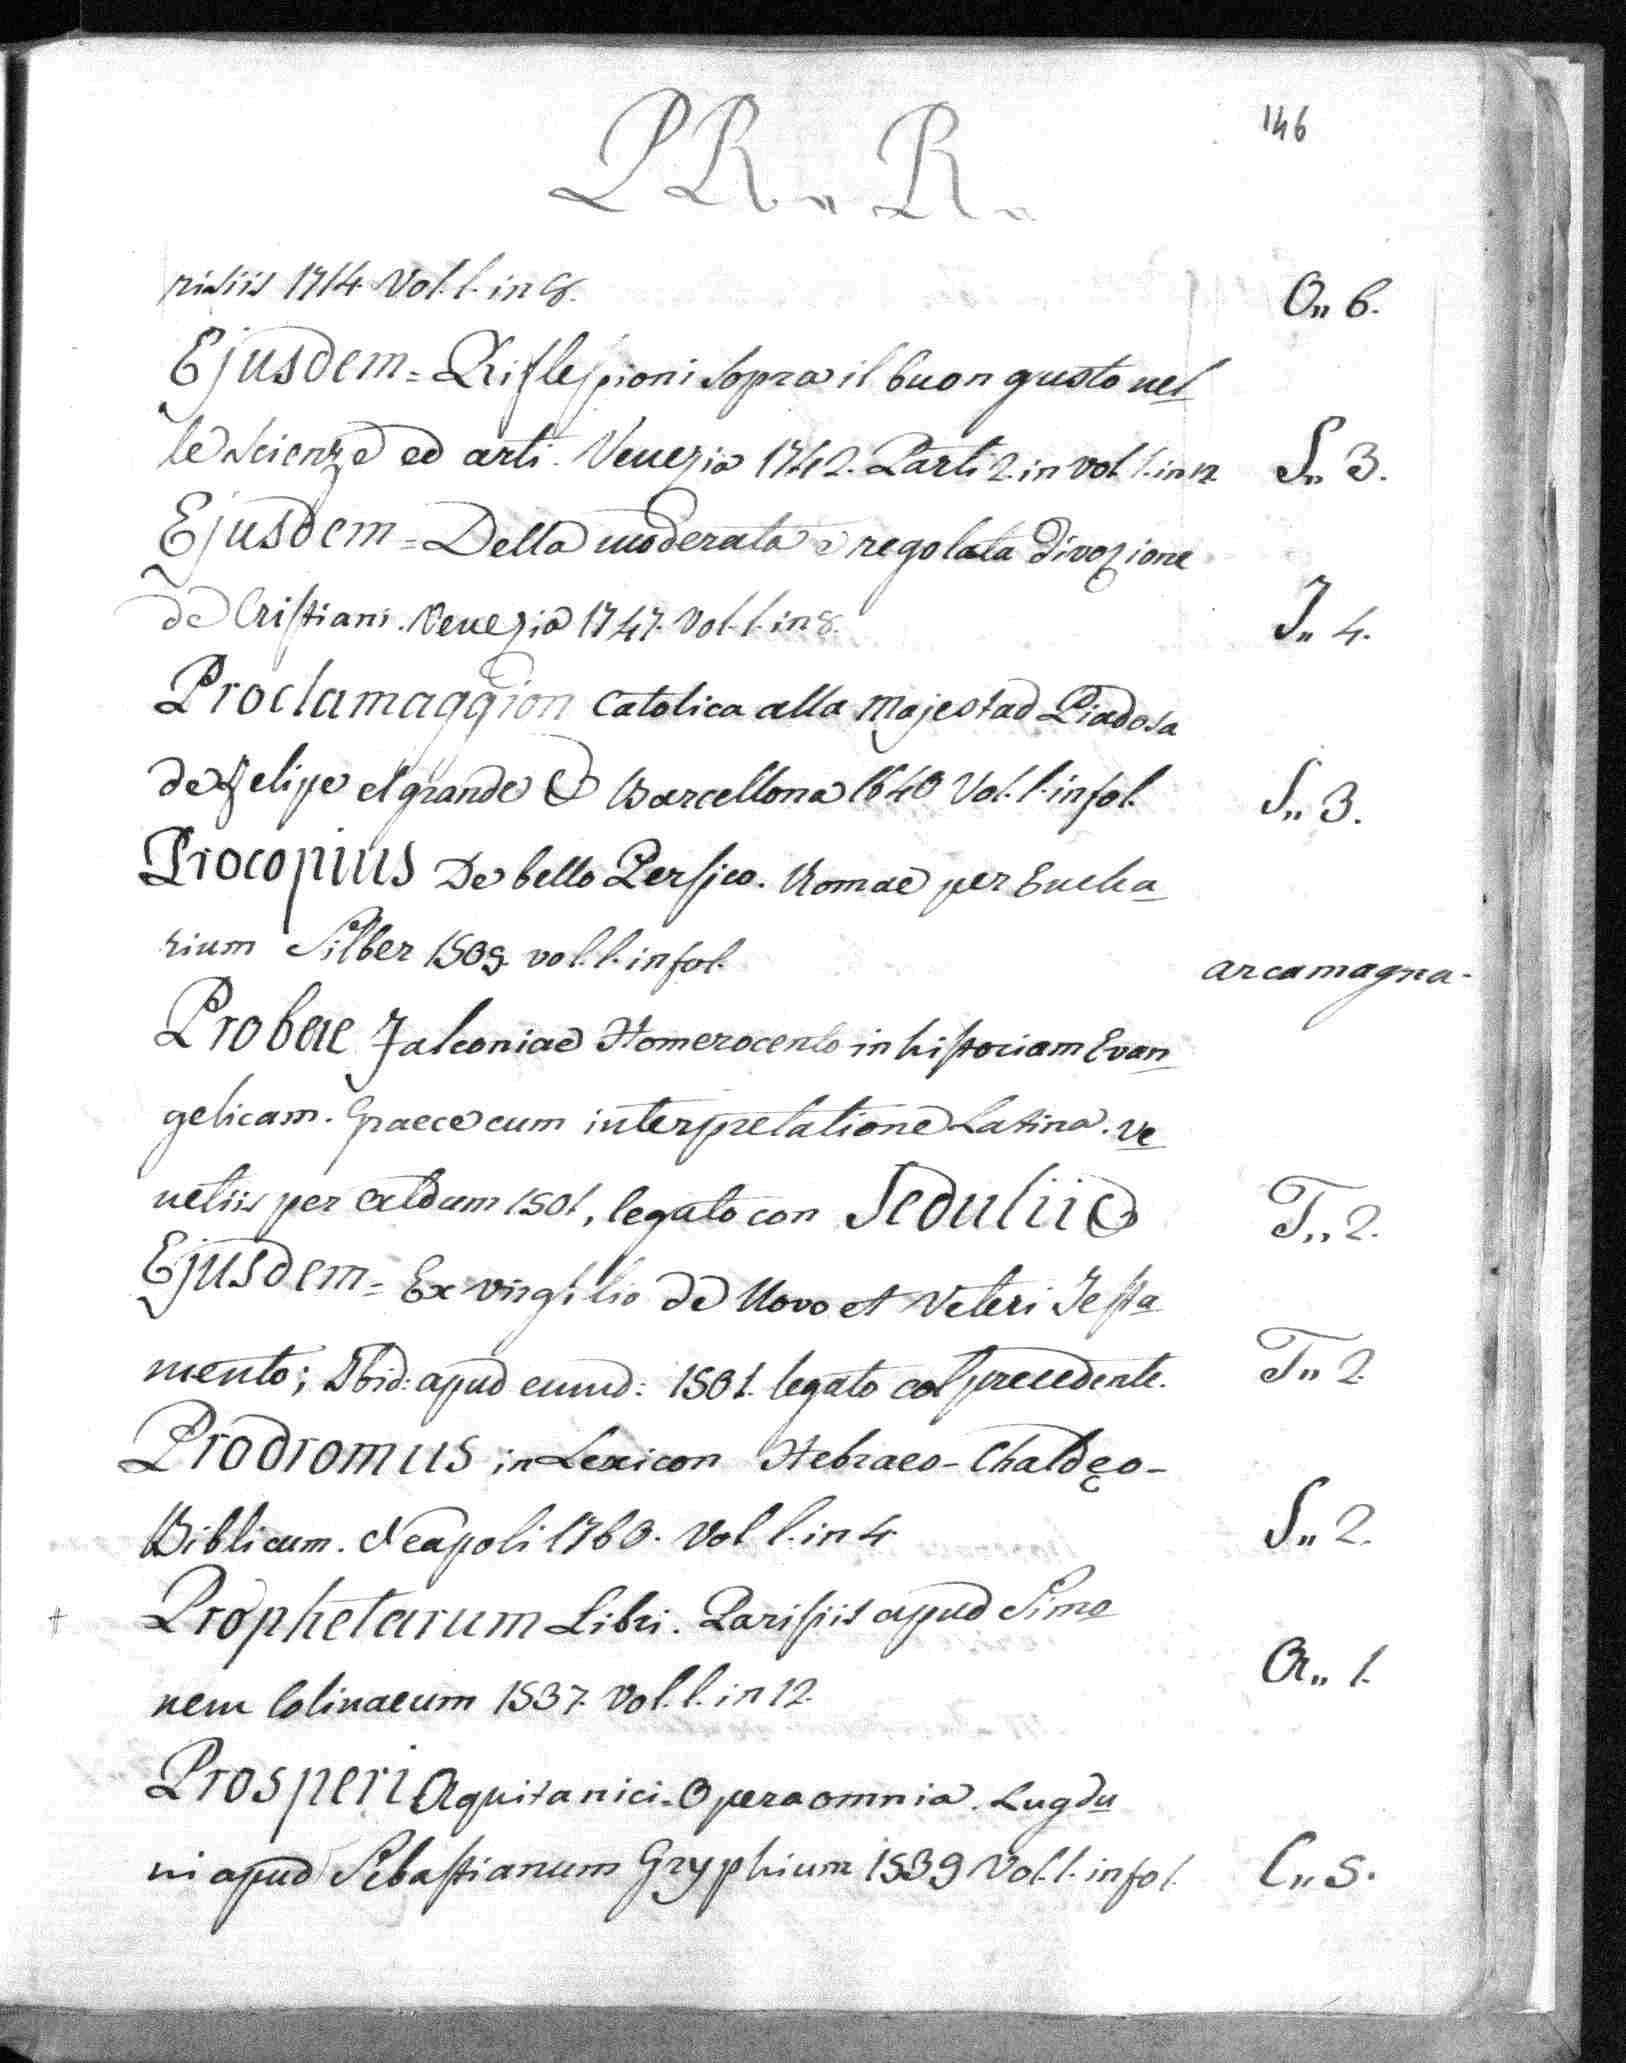 146
PR. „ R. „
risiis 1714. Vol. 1. in 8. O„ 6.
Ejusdem = Riflessioni sopra il buon gusto nel
le Scienze ed arti. Venezia 1742. Parti 2. in vol. 1. in 12 S„ 3.
Ejusdem = Della moderata e regolata divozione
de Cristiani. Venezia 1747. Vol. 1. in 8. I„ 4.
Proclamaggion Catolica alla Majestad Piadosa
de Felipe el grande & Barcellona 1640 Vol. 1. in fol. S„ 3.
Procopius De bello Persico. Romae per Eucha
rium Silber 1509. vol. 1. in fol. arca magna.
Probae Falconiae Homerocento in historiam Evan
gelicam. Graece cum interpretatione Latina. Ve
netiis per Aldum 1501, legato con Sedulii & T„ 2.
Ejusdem = Ex Virgilio de Novo et Veteri Testa
mento; Ibid: apud eumd: 1501. legato col precedente. T„ 2.
Prodromus in Lexicon Hebraeo-Chaldęo-
Biblicum. Neapoli 1760. Vol 1. in 4. S„ 2.
+ Prophetarum Libri. Parisiis apud Simo
nem Colinaeum 1537. Vol. 1. in 12. 1.
Prosperi Aquitanici. Opera omnia. Lugdu
ni apud Sebastianum Gryphium 1539 Vol. 1. in fol. C„ 5.